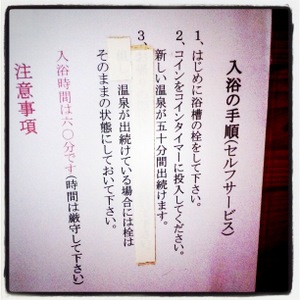 入浴の手順(セルフサービス)
1、はじめに浴槽の栓をして下さい。
2、コインをコインタイマーに投入してください。
新しい温泉が五十分間出続けます。
3、
温泉が出続けている場合には栓は
そのままの状態にしておいて下さい。
入浴時間は六〇分です(時間は厳守して下さい)
注意事項